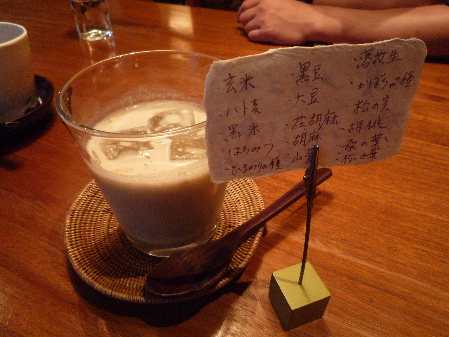 玄米
・ハト麦
・黒米
・はちみつ
・ひまわりの種
・黒豆
・大豆
・荏胡麻
・胡麻
・山
・落花生
・かぼちゃの種
・松の実
・胡桃
・桑の葉
の葉